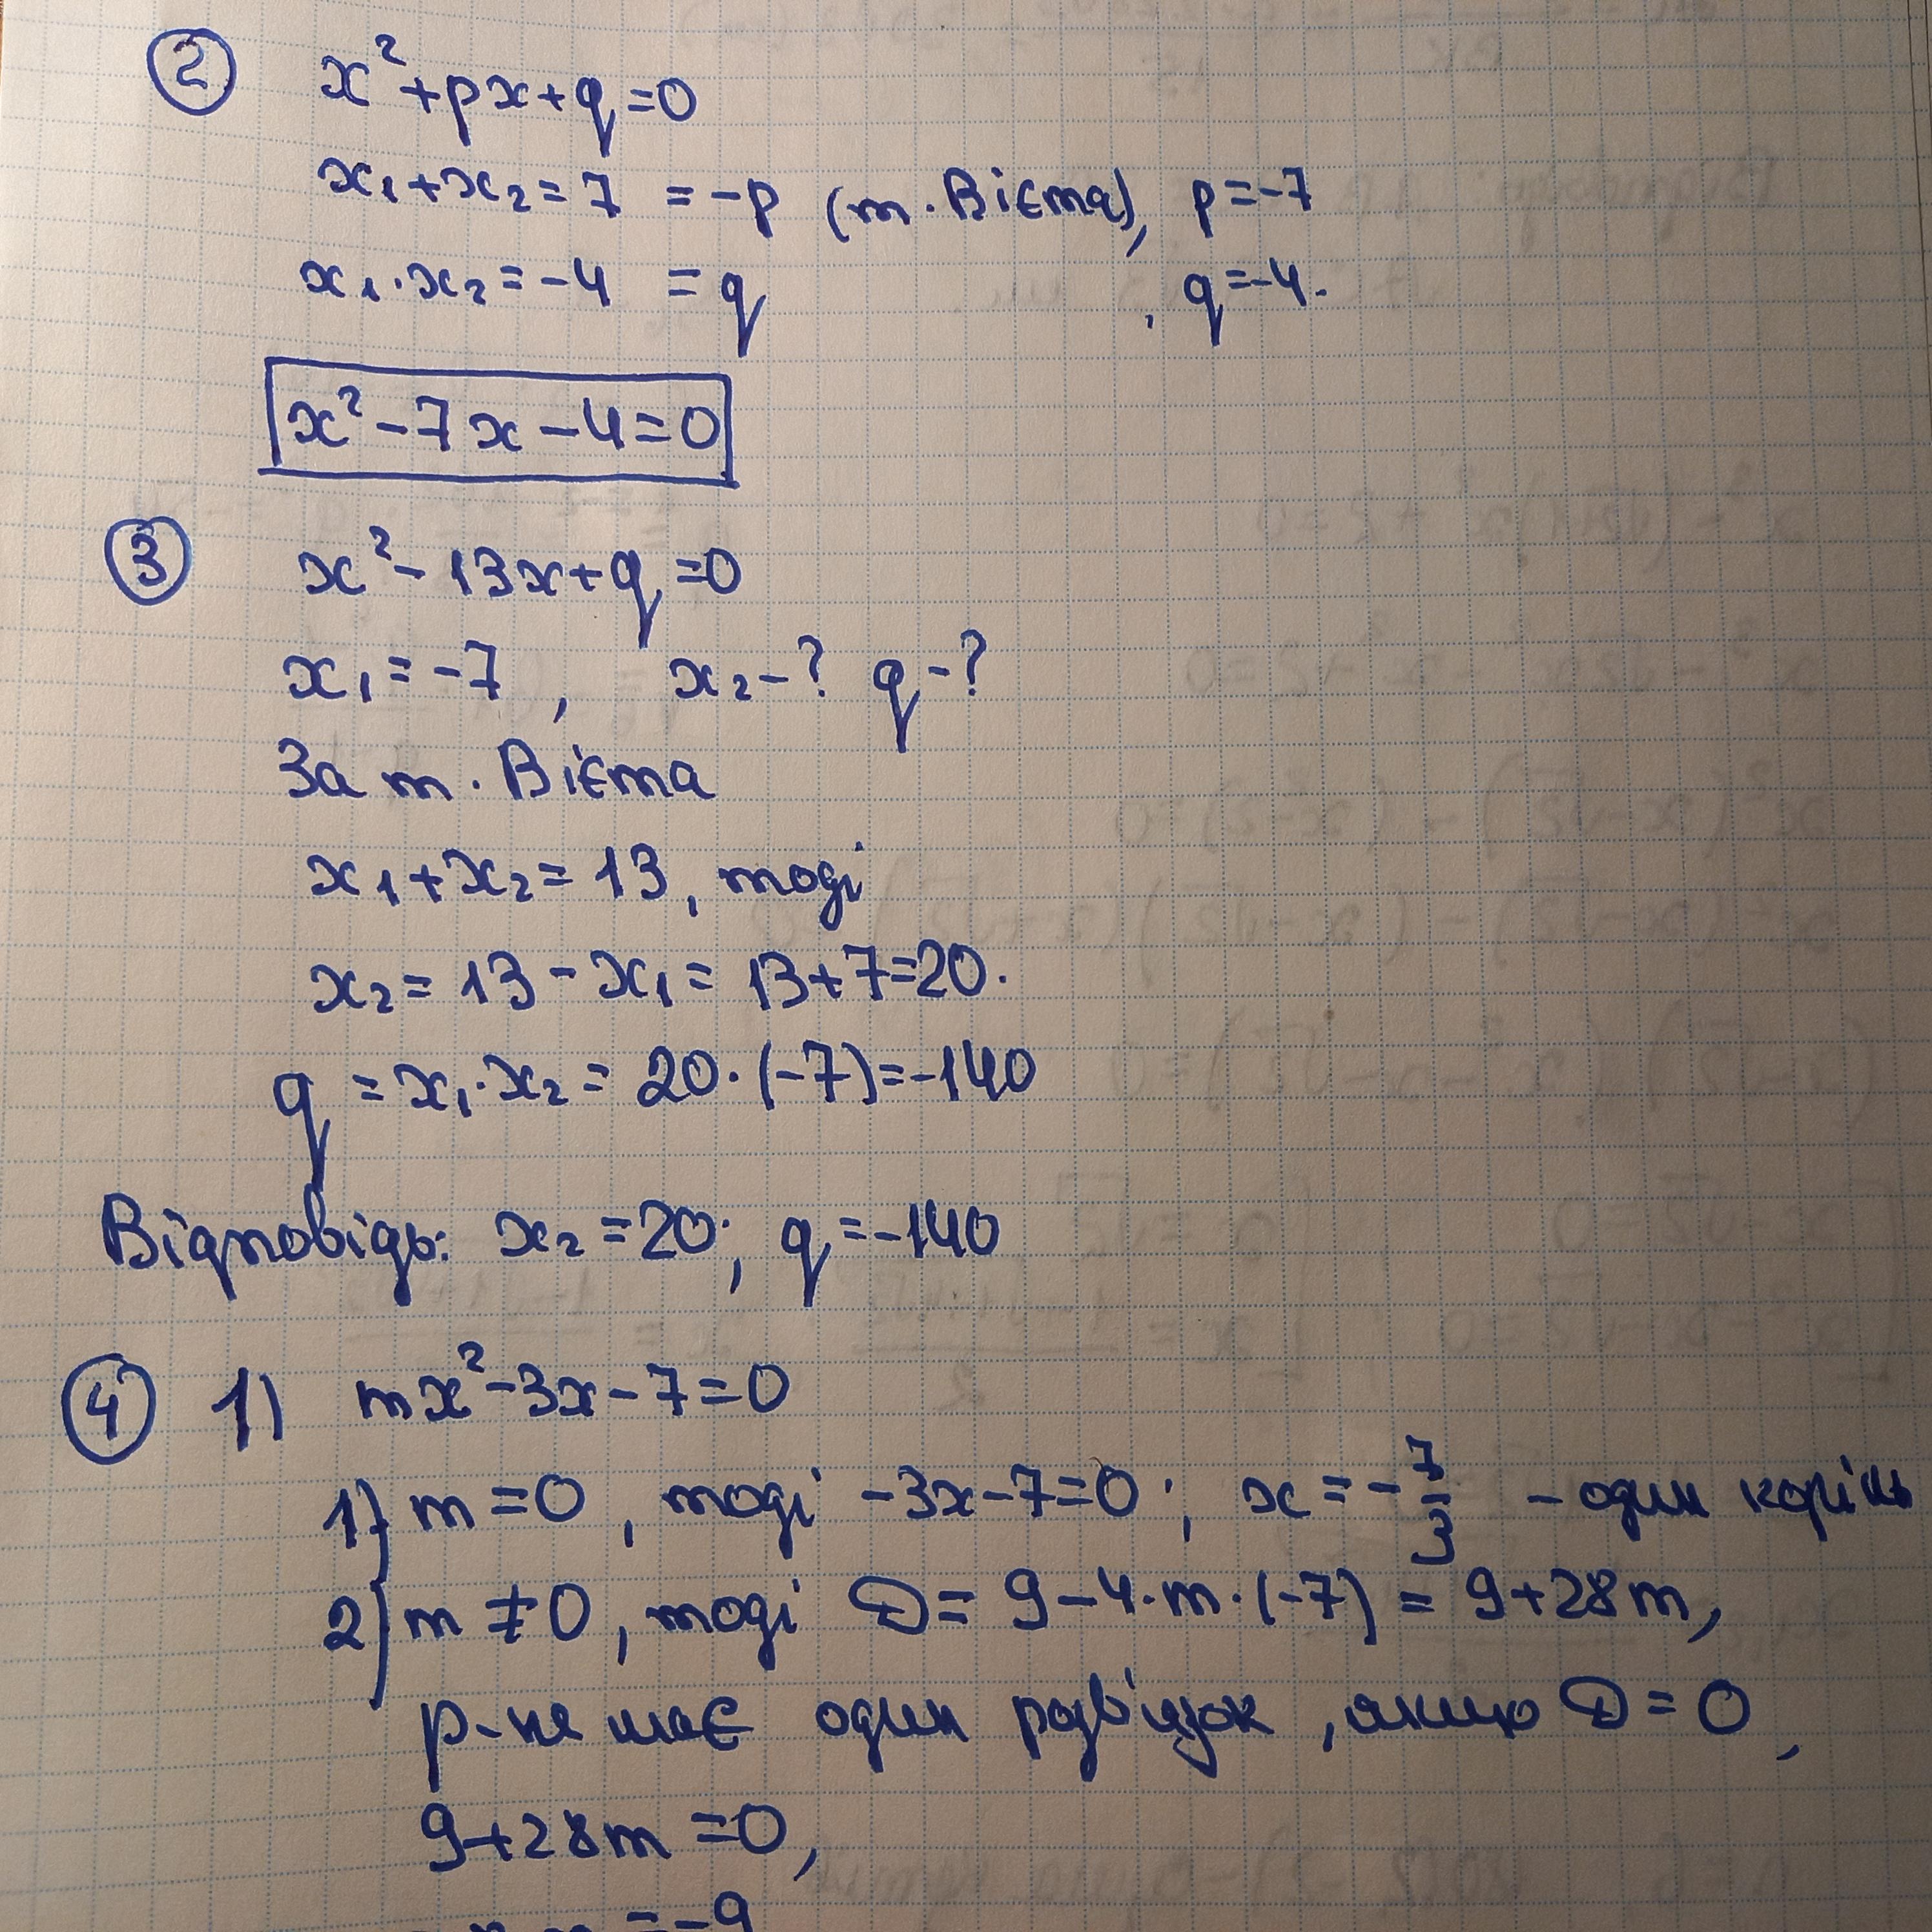 2 x²+px+q=0
x₁+x₂=7 =-p (т. Вієта), p=-7
x₁·x₂=-4 =q , q=-4.
x²-7x-4=0
3 x²-13x+q=0
x₁=-7, x₂-? q-?
За т. Вієта
x₁+x₂=13, тоді
x₂=13-x₁=13+7=20.
q=x₁·x₂=20·(-7)=-140
Відповідь: x₂=20; q=-140
4 1) mx²-3x-7=0
1) m=0, тоді -3x-7=0; x=-7/3 - один корінь
2) m≠0, тоді D=9-4·m·(-7)=9+28m,
р-ня має один розв'язок, якщо D=0,
9+28m=0,
=-9